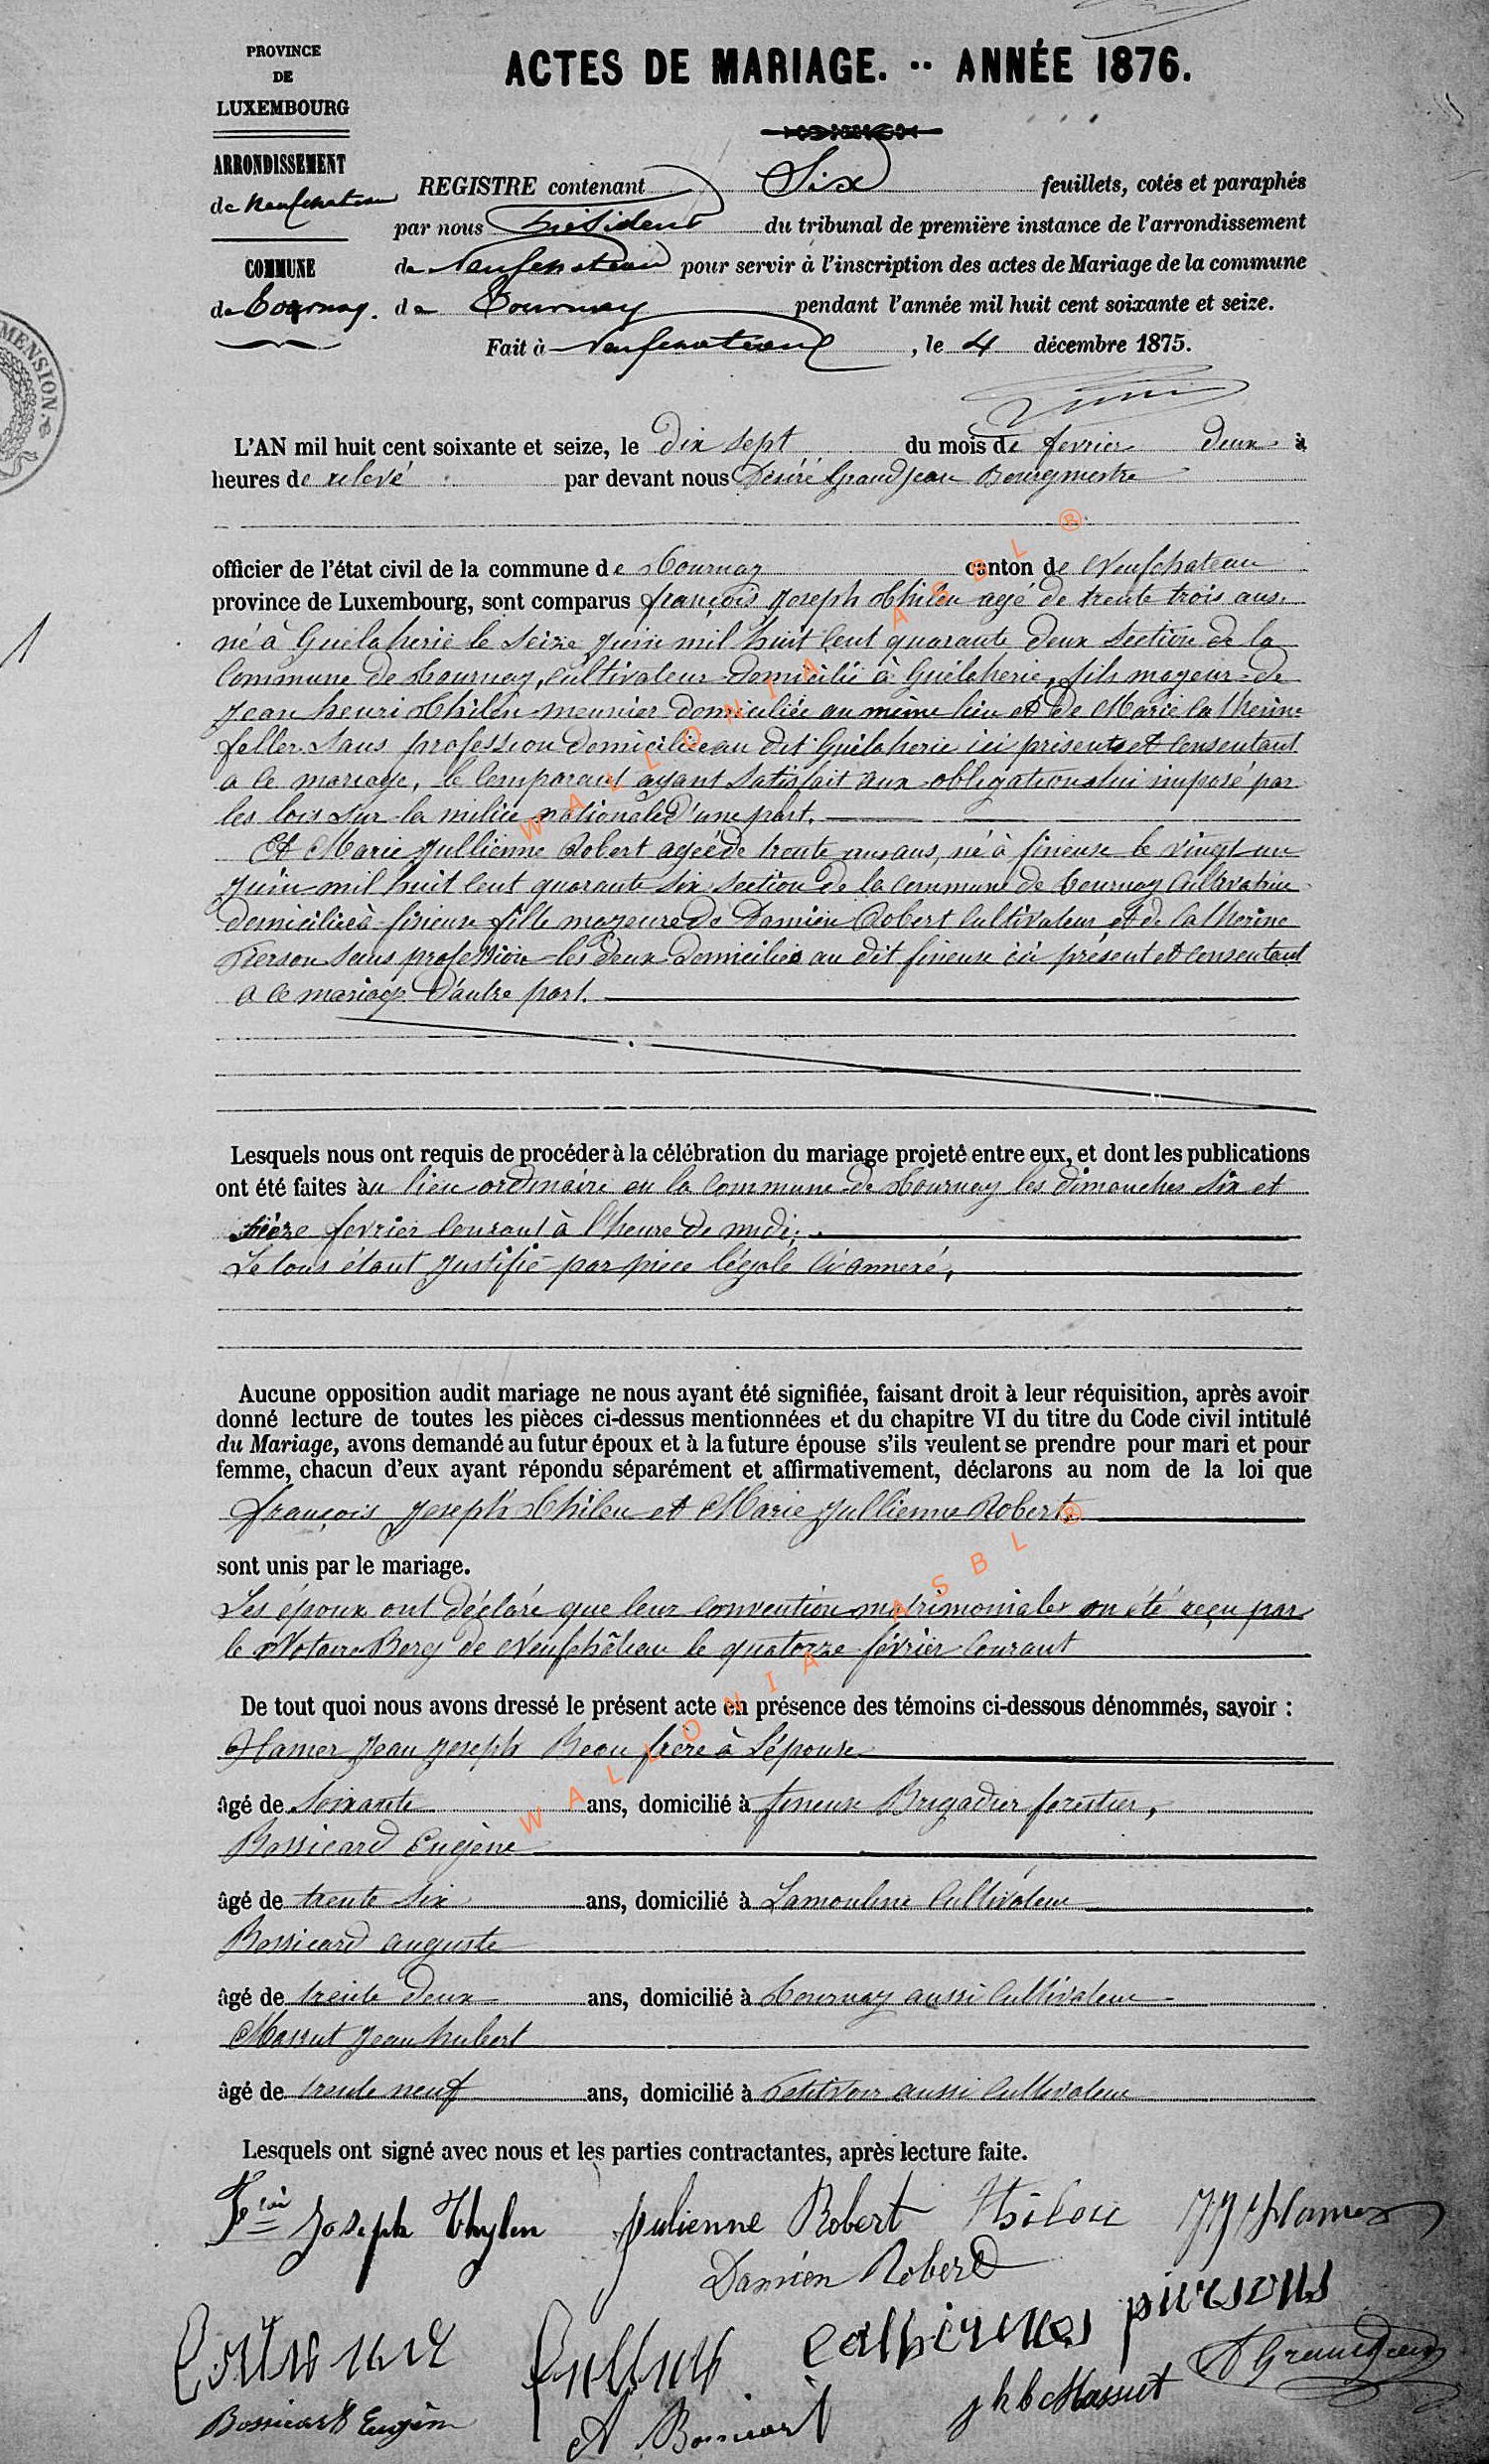 PROVINCE
DE
LUXEMBOURG
ARRONDISSEMENT
de Neufchateau
COMMUNE
de Tournay.
ACTES DE MARIAGE. -- ANNÉE 1876.
REGISTRE contenant Six feuillets, cotés et paraphés
par nous Président du tribunal de première instance de l'arrondissement
de Neufchateau pour servir à l'inscription des actes de Mariage de la commune
de Tournay pendant l'année mil huit cent soixante et seize.
Fait à Neufchateau, le 4 décembre 1875.
MENSION.
1
L'AN mil huit cent soixante et seize, le dix sept du mois de fevrier deux à
heures de relevé par devant nous Désiré Grandjean Bourgmestre
officier de l'état civil de la commune de Tournay canton de Neufchateau
province de Luxembourg, sont comparus françois Joseph Thilen agé de trente trois ans,
né à Guelaherie le seize Juin mil huit cent quarante deux section de la
Commune de Tournay, Cultivateur domicilié à Guélaherie, fils mageur de
Jean henri Thilen meunier domiciliée au même lieu et de Marie Catherine
feller sans profession domiciliée au dit Guélaherie ici présents et consentant
a ce mariage, le comparant ayant satisfait aux obligations lui imposé par
les lois sur la milice nationale d'une part.
Et Marie Jullienne Robert agéé de trente ans, né à fineuse le vingt un
Juin mil huit cent quarante six section de la commune de Tournay Cultivatrice
domiciliée à fineuse fille mageure de Damien Robert Cultivateur et de Catherine
Pierson sans profession les deux domiciliés au dit fineuse ici présent et consentant
a ce mariage d'autre part.
Lesquels nous ont requis de procéder à la célébration du mariage projeté entre eux, et dont les publications
ont été faites au lieu ordinaire en la commune de Tournay les dimanches Six et
treize fevrier courant à l'heure de midi;
Le tous étant Justifié par piece légale ci annexé,
Aucune opposition audit mariage ne nous ayant été signifiée, faisant droit à leur réquisition, après avoir
donné lecture de toutes les pièces ci-dessus mentionnées et du chapitre VI du titre du Code civil intitulé
du Mariage, avons demandé au futur époux et à la future épouse s'ils veulent se prendre pour mari et pour
femme, chacun d'eux ayant répondu séparément et affirmativement, déclarons au nom de la loi que
françois Joseph Thilen et Marie Jullienne Robert
sont unis par le mariage.
Les époux ont déclaré que leur convention matrimoniales on été reçu par
le Notaire Berg de Neufchâteau le quatorze février Courant
De tout quoi nous avons dressé le présent acte en présence des témoins ci-dessous dénommés, savoir :
Hamer Jean Joseph Beau frère à L'épouse
âgé de Soixante ans, domicilié à fineuse Brigadier forestier,
Bossicard Eugène
âgé de trente six ans, domicilié à Lamouline Cultivateur
Bossicard auguste
âgé de trente deux ans, domicilié à Tournay aussi Cultivateur
Massut Jean hubert
âgé de trente neuf ans, domicilié à Petitvoir aussi Cultivateur
Lesquels ont signé avec nous et les parties contractantes, après lecture faite.
Joseph Thylen Julienne Robert Thilen JJ Hamer
Damien Robert
Catherines piersons
A Grandjean
Bossicart Eugène A Bossicart J h b Massut
WALLONIA ASBL ®
WALLONIA ASBL ®